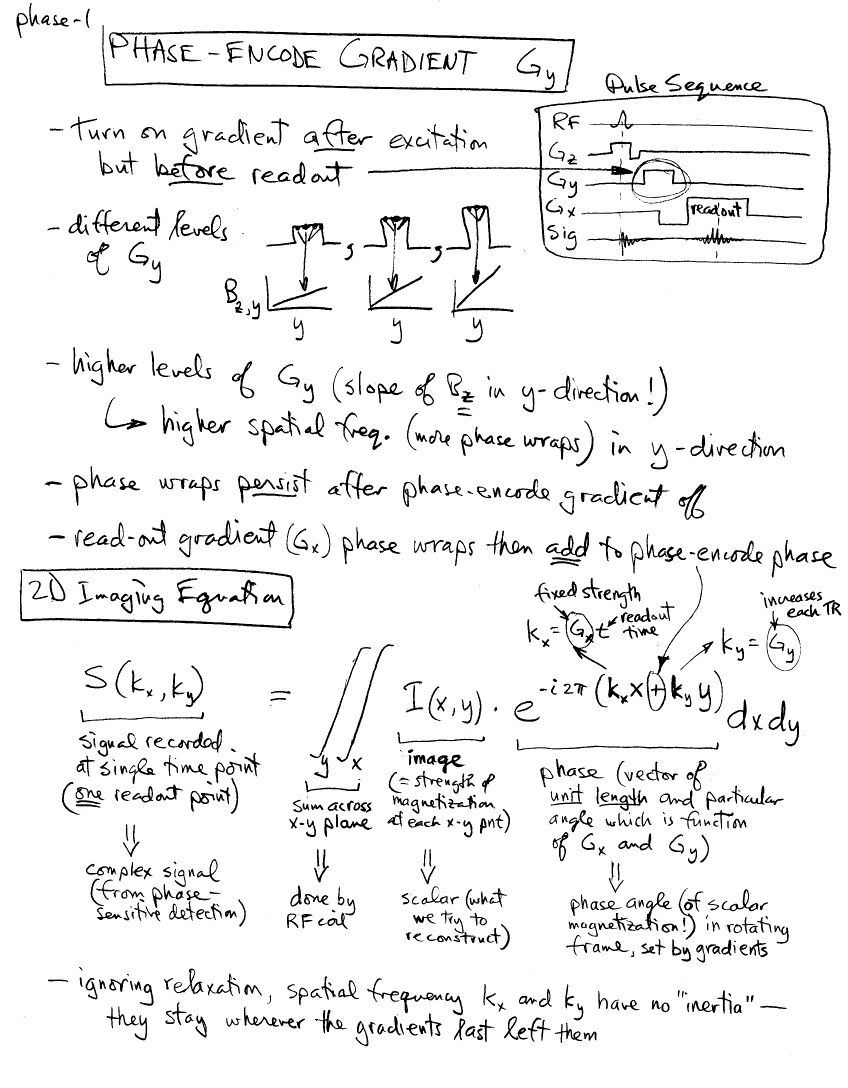 phase-1
PHASE-ENCODE GRADIENT Gy
Pulse Sequence
RF
Gz
Gy
Gx readout
Sig
- turn on gradient after excitation
but before readout
- different levels
of Gy
, ,
Bz,y
y y y
- higher levels of Gy (slope of Bz in y-direction!)
↳ higher spatial freq. (more phase wraps) in y-direction
- phase wraps persist after phase-encode gradient off
- read-out gradient (Gx) phase wraps then add to phase-encode phase
2D Imaging Equation
fixed strength
kx = Gx t readout time
increases each TR
ky = Gy
S(kx, ky) = ∫∫ I(x,y) · e^-i2π(kx x + ky y) dx dy
y x
signal recorded
at single time point
(one readout point)
sum across
x-y plane
image
(= strength of
magnetization
at each x-y pnt)
phase (vector of
unit length and particular
angle which is function
of Gx and Gy)
⇓ ⇓ ⇓ ⇓
complex signal
(from phase-
sensitive detection)
done by
RF coil
scalar (what
we try to
reconstruct)
phase angle (of scalar
magnetization!) in rotating
frame, set by gradients
- ignoring relaxation, spatial frequency kx and ky have no "inertia" —
they stay wherever the gradients last left them